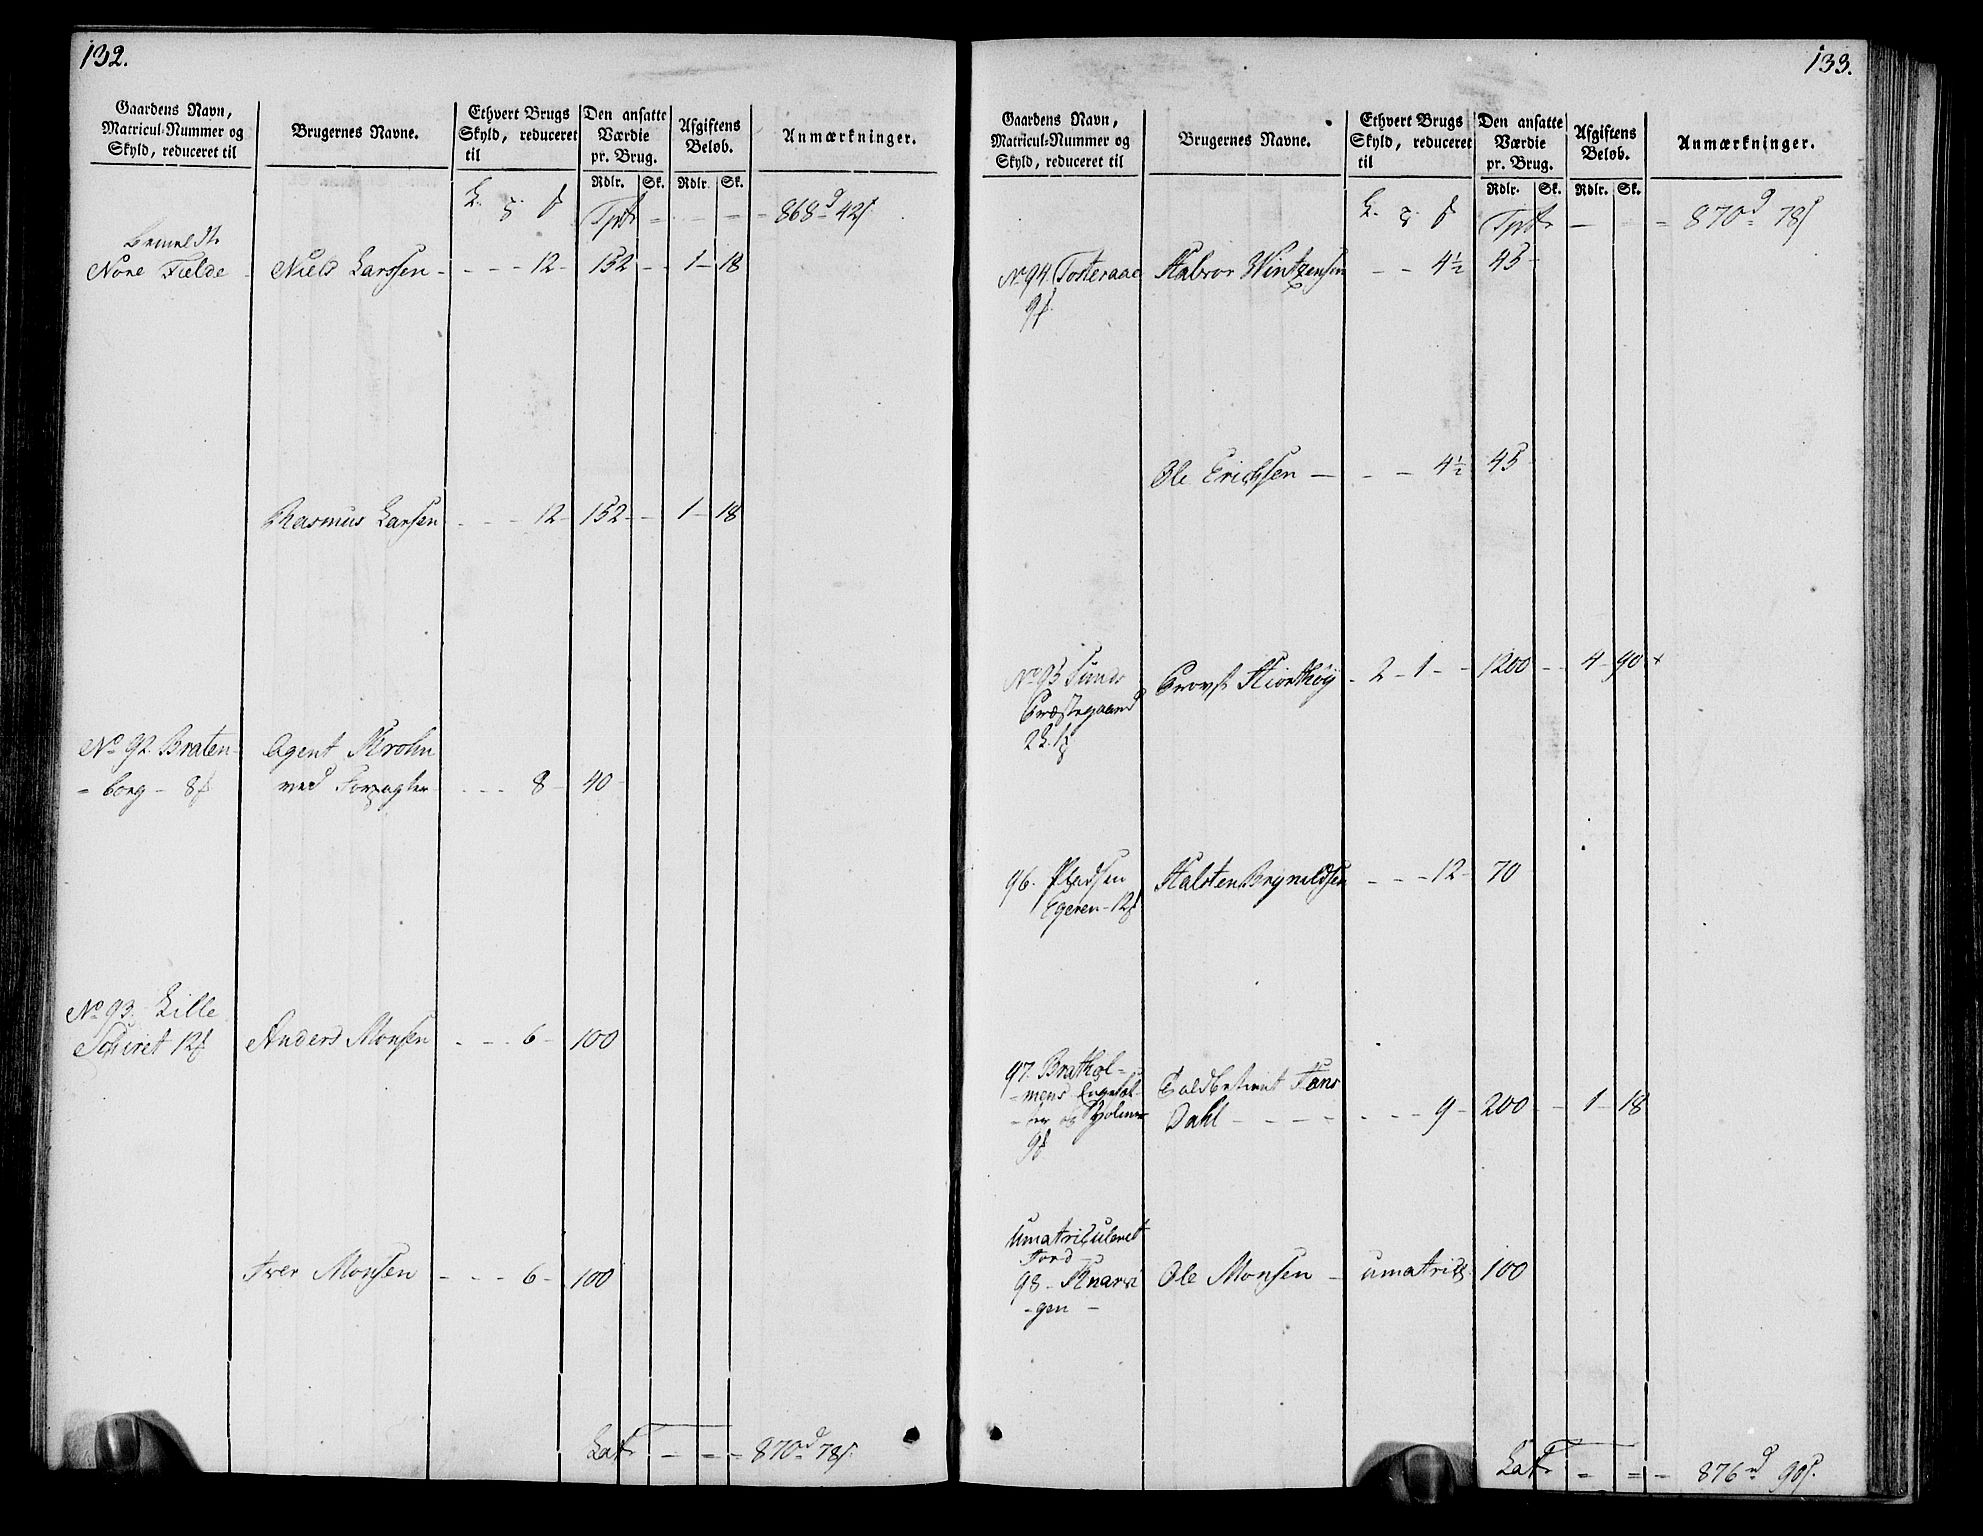 132.
Gaardens Navn,
Matricul-Nummer og
Skyld, reduceret til
Brugernes Navne.
Ethvert Brugs
Skyld, reduceret
til
Den ansatte
Værdie
pr. Brug.
Rdlr. Sk.
Afgiftens
Beløb.
Rdlr. Sk.
Anmærkninger.
Tpt - - - - 868 42ſ
bemeldte
Nore Fielde - Niels Larssen - - - - 12 - 152 - - 1 - 18
Rasmus Larsen - - - 12 - 152 - - 1 - 18
No 92. Braten- Agent Krohn
- borg - 8 ved Forpagter - - - 8 - 40 -
No 93. Lille
Sotret 12 Anders Monsen - - - 6 - 100
Iver Monsen - - - 6 - 100
Lat - - - 870 78ſ.
133.
Gaardens Navn,
Matricul-Nummer og
Skyld, reduceret til
Brugernes Navne.
Ethvert Brugs
Skyld, reduceret
til
Den ansatte
Værdie
pr. Brug.
Rdlr. Sk.
Afgiftens
Beløb.
Rdlr. Sk.
Anmærkninger.
Tpt - - - 870 78ſ
No 94. Tosteraae Halvor Wintzensen - - 4½ 45 -
9
Ole Erichsen - - - 4½ 45 -
No 95 Sunds Provst Hiorthøy - 2 - 1 - - 1200 - - 4 - 90 +
Præstegaard
96. Pladsen Halsten Brynildsen - - - 12 - 70
Egeren - 12
97. Brathol- Toldbetient Fans
- mens
- ter og Holmen Dahl - - - - - - - 9 - 200 - - 1 - 18
9
Umatriculeret
Jord
98 - Knarvi Ole Monsen - umatricl. 100
- gen -
Lat - = - 876 90ſ.